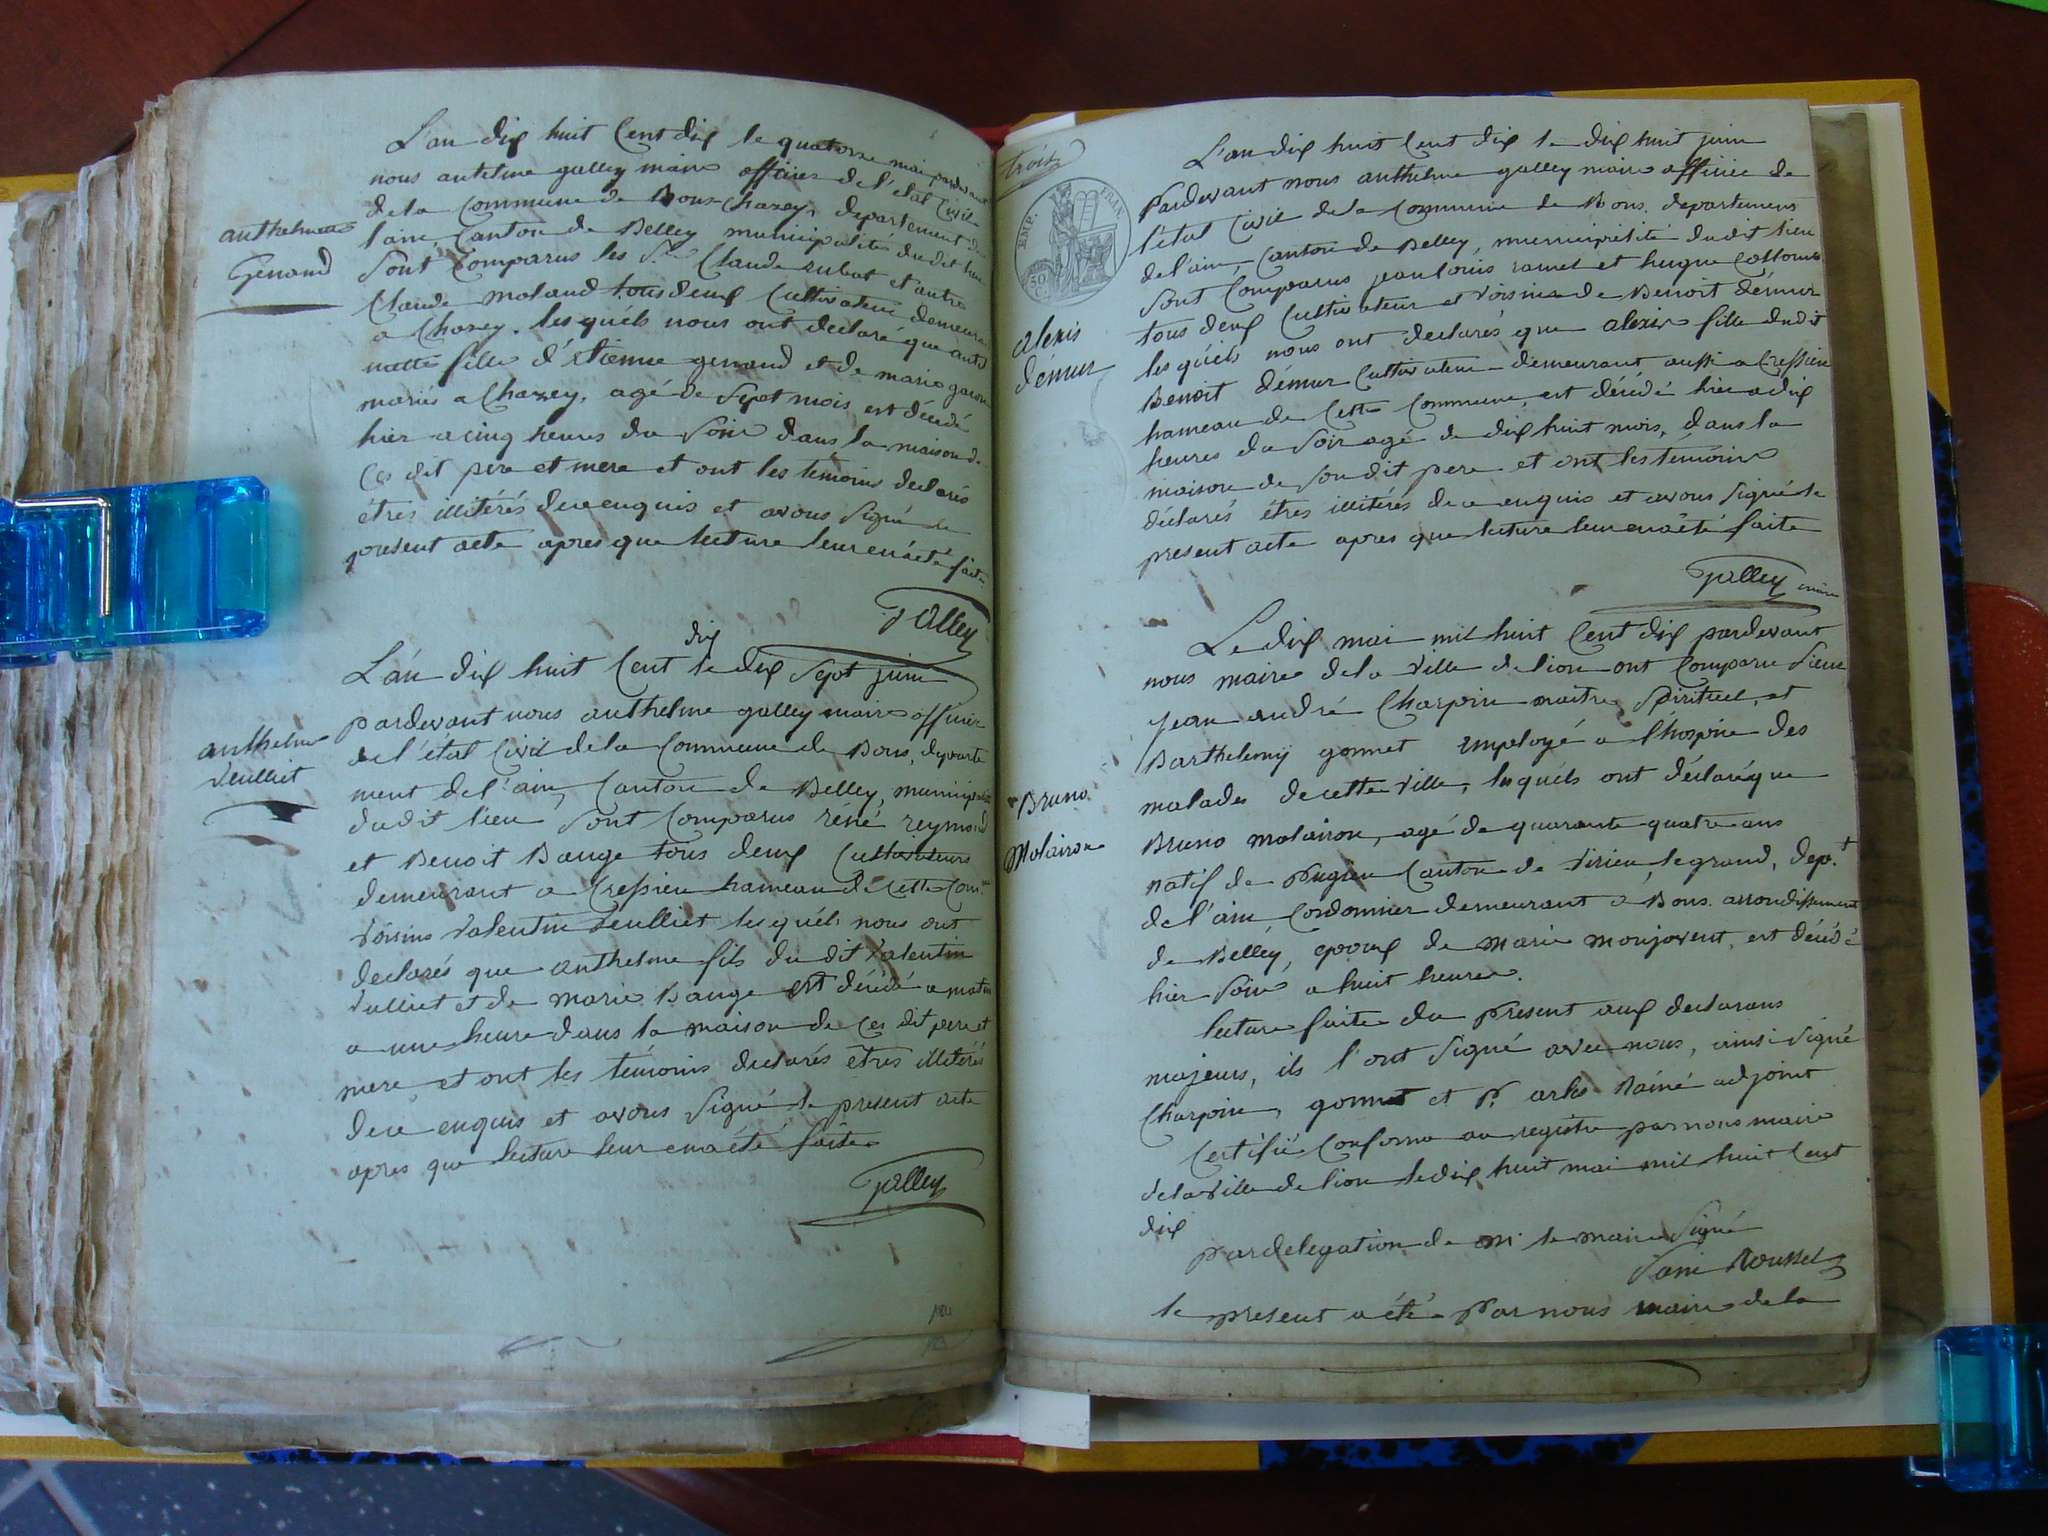 L'an dix huit Cent dix le quatorze mai pardevant
nous antelme galley maire officier de l'état Civil
de la Commune de Bons-Chazey, departement de
l'ain, Canton de Belley municipalité du dit lieu
anthelmette
Genand
Sont Comparus les Sr Claude rubat et autre
Claude moland tous deux Cultivateur demeurant
a Chazey. lesquéls nous ont declaré que antel
mette fille d'Etienne genand et de marie
mariés a Chazey, agé de Sept mois est décédé
hier a cinq heures du Soir dans la maison de
Ces dit pere et mere et ont les temoins declarés
étres illitérés de ce enquis et avons Signé le
présent acte apres que lecture leur en a été faite
Galley
L'an dix huit Cent dix le dix Sept juin
pardevant nous anthelme galley maire officier
anthelme
veulliet
de l'état Civil de la Commune de Bons, departe
ment de l'ain, Canton de Belley, municipalité
dudit lieu Sont Comparus réné reymond
et Benoit Bauge tous deux Cultivateurs
demeurant a Cressieu hameau de Cette Com.ne
voisins valentin veulliet les quéls nous ont
declarés que anthelme fils du dit valentin
vulliet et de marie Bauge est décédé a matin
a une heure dans la maison de Ces dit pere et
mere, et ont les témoins declarés etres illitérés
de ce enquis et avons Signé le present acte
apres que lecture leur en a été faite
Galley
trois
EMP. FRAN.
50 C.
L'an dix huit Cent dix le dix huit juin
Pardevant nous anthelme galley maire officier de
l'état Civil de la Commune de Bons. departement
de l'ain, Canton de Belley, municipalité dudit lieu
Sont Comparus jean louis ramel et hugue
tous deux Cultivateur et voisins de Benoit démur
alexis
démur
les quéls nous ont declarés que alexis fille dudit
Benoit démur Cultivateur demeurant aussi a Cressieu
hameau de Cette Commune, est décédé hier a dix
heures du Soir agé de dix huit mois, dans la
maison de Son dit pere et ont les témoins
déclarés étres illitérés de ce enquis et avons Signé le
present acte apres que lecture leur en a été faite
Galley maire
Le dix mai mil huit Cent dix pardevant
nous maire de la ville de lion ont Comparu Sieur
jean andré Charpin maitre Spirituel, et
Barthelemy gonnet employé a l'hospice des
Bruno
Molairon
malades de cette ville, lesquéls ont déclaré que
Bruno molairon, agé de quarante quatre ans
natif de Pugieu Canton de virieu le grand, dep.t
de l'ain Cordonnier demeurant a Bons. arrondissement
de Belley, epoux de marie monjovent, est décédé
hier Soir a huit heures.
lecture faite du present aux declarans
majeurs, ils l'ont Signé avec nous, ainsi Signé
Charpin, gonnet et P. arlès l'ainé adjoint
Certifié Conforme au registre par nous maire
de la ville de lion le dix huit mai mil huit Cent
dix
par delegation de M. le maire Signé
Roussel
le present a été Par nous maire de la